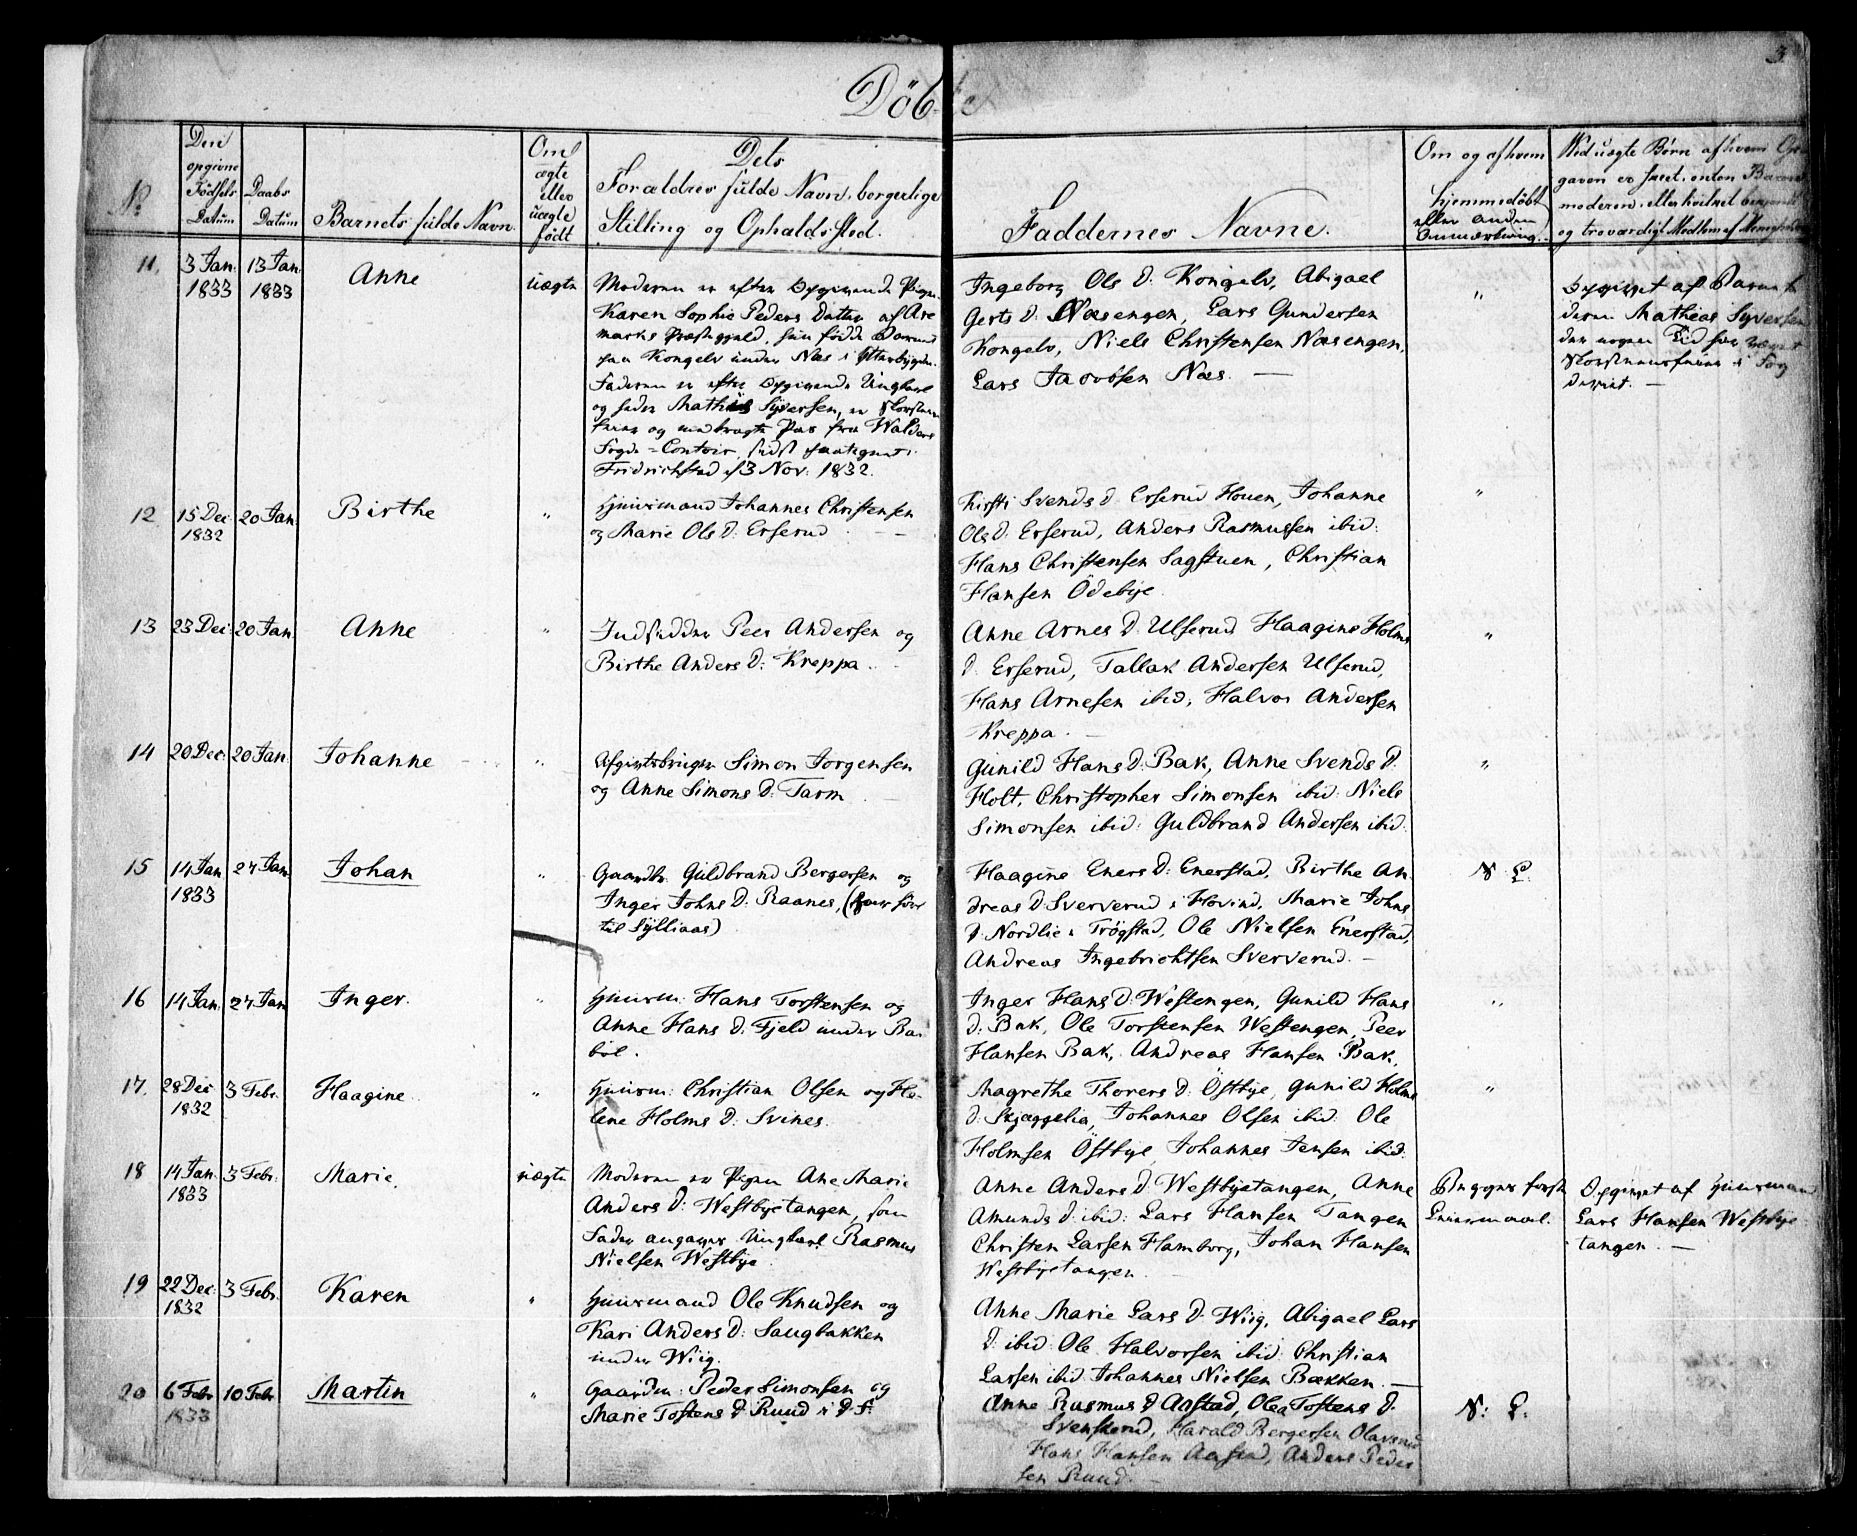 3
Döbte
No
Dens opgivne Födsels Datum
Daabs Datum
Barnets fulde Navn.
Om ægte eller uægte födt
Dets Forældres fulde Navn, borgerlige Stilling og Opholds Sted.
Faddernes Navne.
Om og af hvem hjemmedöbt eller anden Anmærkning.
Ved uægte Börn af hvem Op-
gaven er skeet, enten Barne-
moderen, eller hvilket
og troværdigt Medlem af Menigheden
11.
3 Jan: 1833
13 Jan: 1833
Anne
uægte
Moderen er efter Opgivende Pigen
Karen Sophie Peders Datter af Are
marks Præstegjeld, hun födde Barnet
paa Kongelv under Næs i Ytterbygden.
Faderen er efter Opgivende Ungkarl
og heder Mathias Syversen, er
og medbragte Pas fra Walders
Fogde-Contoir, sidst paategnet i
Fridrichstad d 3 Nov: 1832.
Ingeborg Ols D: Kongelv, Abigael
Gerts D. Næsengen, Lars Gundersen
Kongelv, Niels Christensen Næsengen,
Lars Jacobsen Næs. —
"
Opgivet af Barnets
deren Mathias Syversen
der nogen Tid har været
i Fog
deriet. —
12
15 Dec: 1832
20 Jan:
Birthe
"
Huusmand Johannes Christensen
og Marie Ols D: Erserud
Kirsti Svends D Erserud Houen, Johanne
Ols D: Erserud, Anders Rasmussen ibid:
Hans Christensen Sagstuen, Christian
Hansen Ödebye.
"
13
23 Dec:
20 Jan
Anne
"
Indsidder Peer Andersen og
Birthe Anders D: Kreppa.
Anne Arnes D. Ulserud Haagine Holms
D. Erserud, Tallak Andersen Ulserud,
Hans Arnesen ibid, Halvor Andersen
Kreppa. —
"
14
20 Dec:
20 Jan.
Johanne
"
Afgiftsbruger Simon Jorgensen
og Anne Simons D: Tarm
Gunild Hans D: Bak, Anne Svends D.
Holt, Christopher Simonsen ibid: Niels
Simonsen ibid: Guldbrand Andersen ibid.
"
15
14 Jan 1833
27 Jan.
Johan
"
Gaardbr. Guldbrand Bergersen og
Inger Johns D: Raanes,
til Sylliaas)
Haagine Eners D: Enerstad, Birthe An
dreas D: Sververud i Hovind, Marie Johns
D. Nordlie i Trögstad, Ole Nielsen Enerstad,
Andreas Ingebrichtsen Sververud. —
N. L.
16
14 Jan.
27 Jan
Inger.
"
Huusm: Hans Torstensen og
Anne Hans D: Fjeld under Bar
böl.
Inger Hans D: Westengen, Gunild Hans
D. Bak, Ole Torstensen Westengen, Peer
Hansen Bak, Andreas Hansen Bak,
"
17.
28 Dec 1832
3 Febr.
Haagine
"
Huusm: Christian Olsen og He-
lene Holms D: Svines.
Magrethe Thorers D: Östbye, Gunild Holms
D. Skjæggelia, Johannes Olsen ibid: Ole
Holmsen Östbye, Johannes Jensen ibid:
"
18
14 Jan. 1833
3 Febr:
Marie.
uægte
Moderen er Pigen Ane Marie
Anders D: Westbyetangen, som
Fader angaves Ungkarl Rasmus
Nielsen Westbye
Anne Anders D: Westbyetangen, Anne
Amunds D: ibid: Lars Hansen Tangen
Christen Larsen Hamborg, Johan Hansen
Westbyetangen. —
Begges förste
Leiermaal.
Opgivet af Huusmand
Lars Hansen Westbye
tangen. —
19
22 Dec: 1832
3 Febr.
Karen
"
Huusmand Ole Knudsen og
Kari Anders D: Saugbakken
under Wiig.
Anne Marie Lars D. Wiig, Abigael Lars
D: ibid: Ole Halvorsen ibid: Christian
Larsen ibid Johannes Nielsen Bækken. —
20
6 Febr 1833
10 Febr
Martin
"
Gaardm: Peder Simonsen og
Marie Tostens D. Ruud i D. F.
Anne Rasmus D Aastad, Olea Tostens D.
Svenskerud, Harald Bergersen Olavsrud
Hans Hansen Aastad, Anders Peder
sen Ruud. —
N: L: